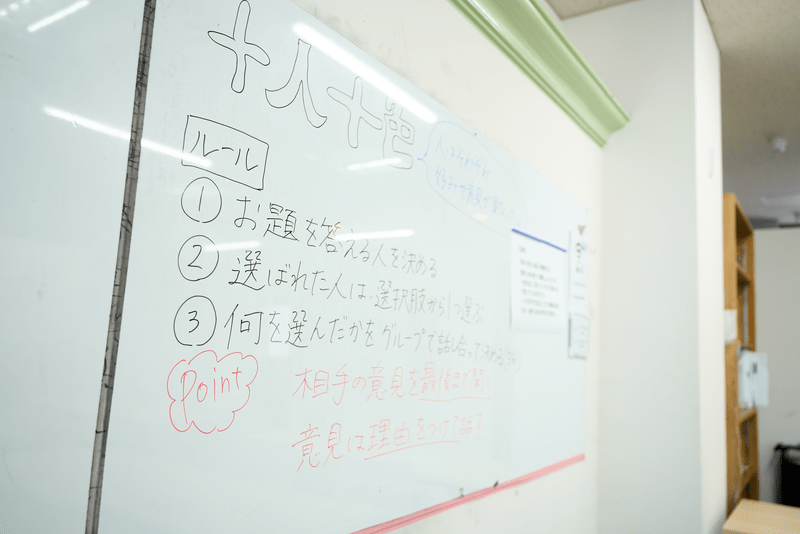 十人十色
人はそれぞれ
好みや意見が
ルール
① お題を答える人を決める
② 選ばれた人は、選択肢から1つ選ぶ
③ 何を選んだかをグループで話し合って決める
Point
相手の意見を最後まで聞く
意見は理由をつけて話す